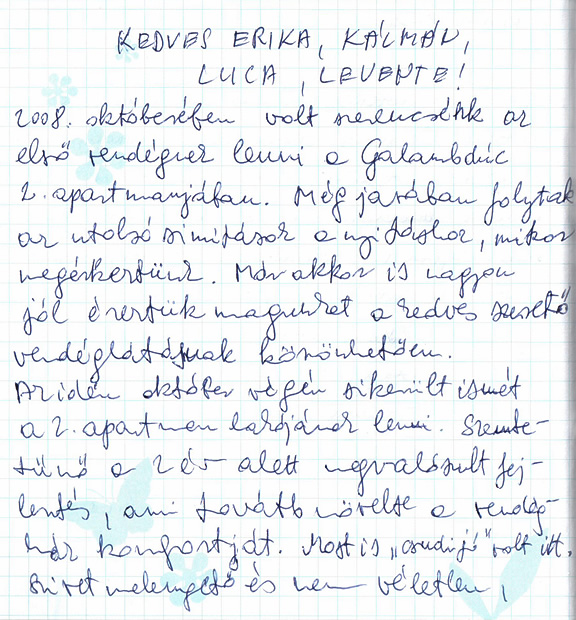 KEDVES ERIKA, KÁLMÁN,
LUCA, LEVENTE!
2008. októberében volt szerencsénk az
első vendégnek lenni a Galambdúc
2. apartmanjában. Még javában folytak
az utolsó simítások a nyitáshoz, mikor
megérkeztünk. Már akkor is nagyon
jól éreztük magunkat a kedves szerető
vendéglátásnak köszönhetően.
Az idén október végén sikerült ismét
a 2. apartman lakójának lenni. Szembe-
tűnő a 2 év alatt megvalósult fej-
lesztés, ami tovább növelte a vendég-
ház komfortját. Most is „csudijó" volt itt.
Szívet melengető és nem véletlen,